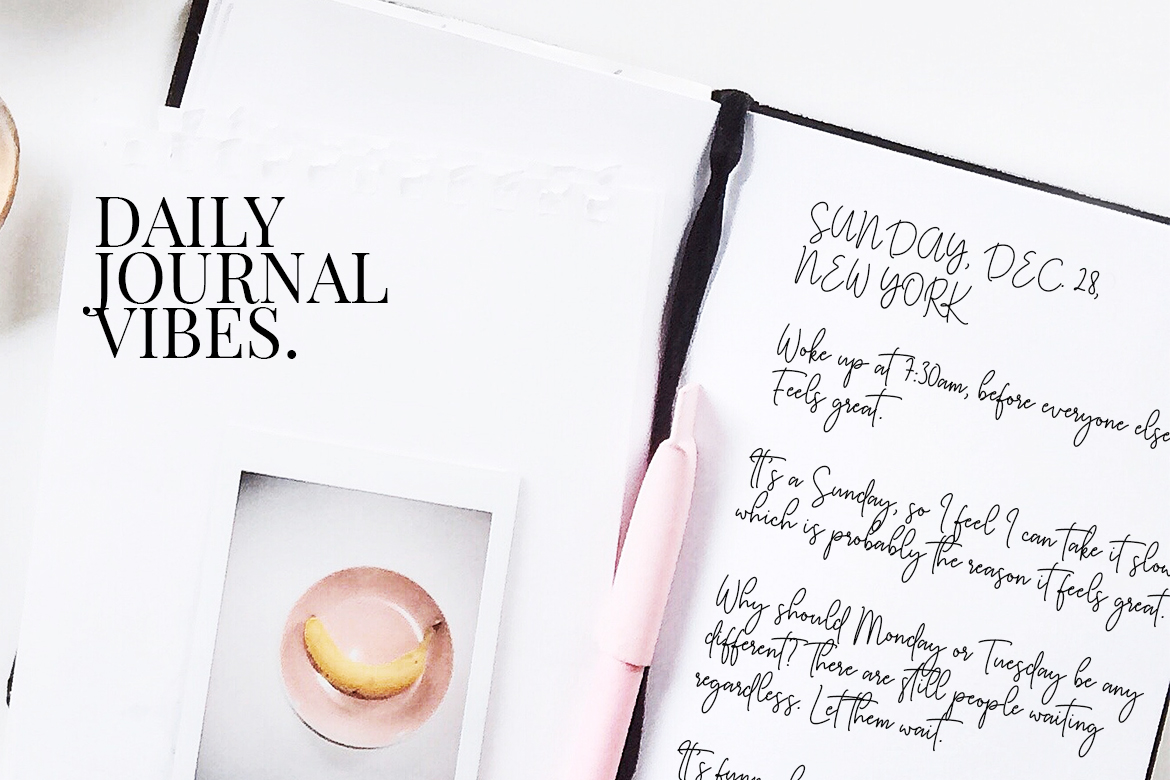 DAILY
JOURNAL
VIBES.
SUNDAY, DEC. 28,
NEW YORK
Woke up at 7.30am, before everyone else
Feels great.
It's a Sunday, so I feel I can take it slow
which is probably the reason it feels great.
Why should Monday or Tuesday be any
different? There are still people waiting
regardless. Let them wait.
It's